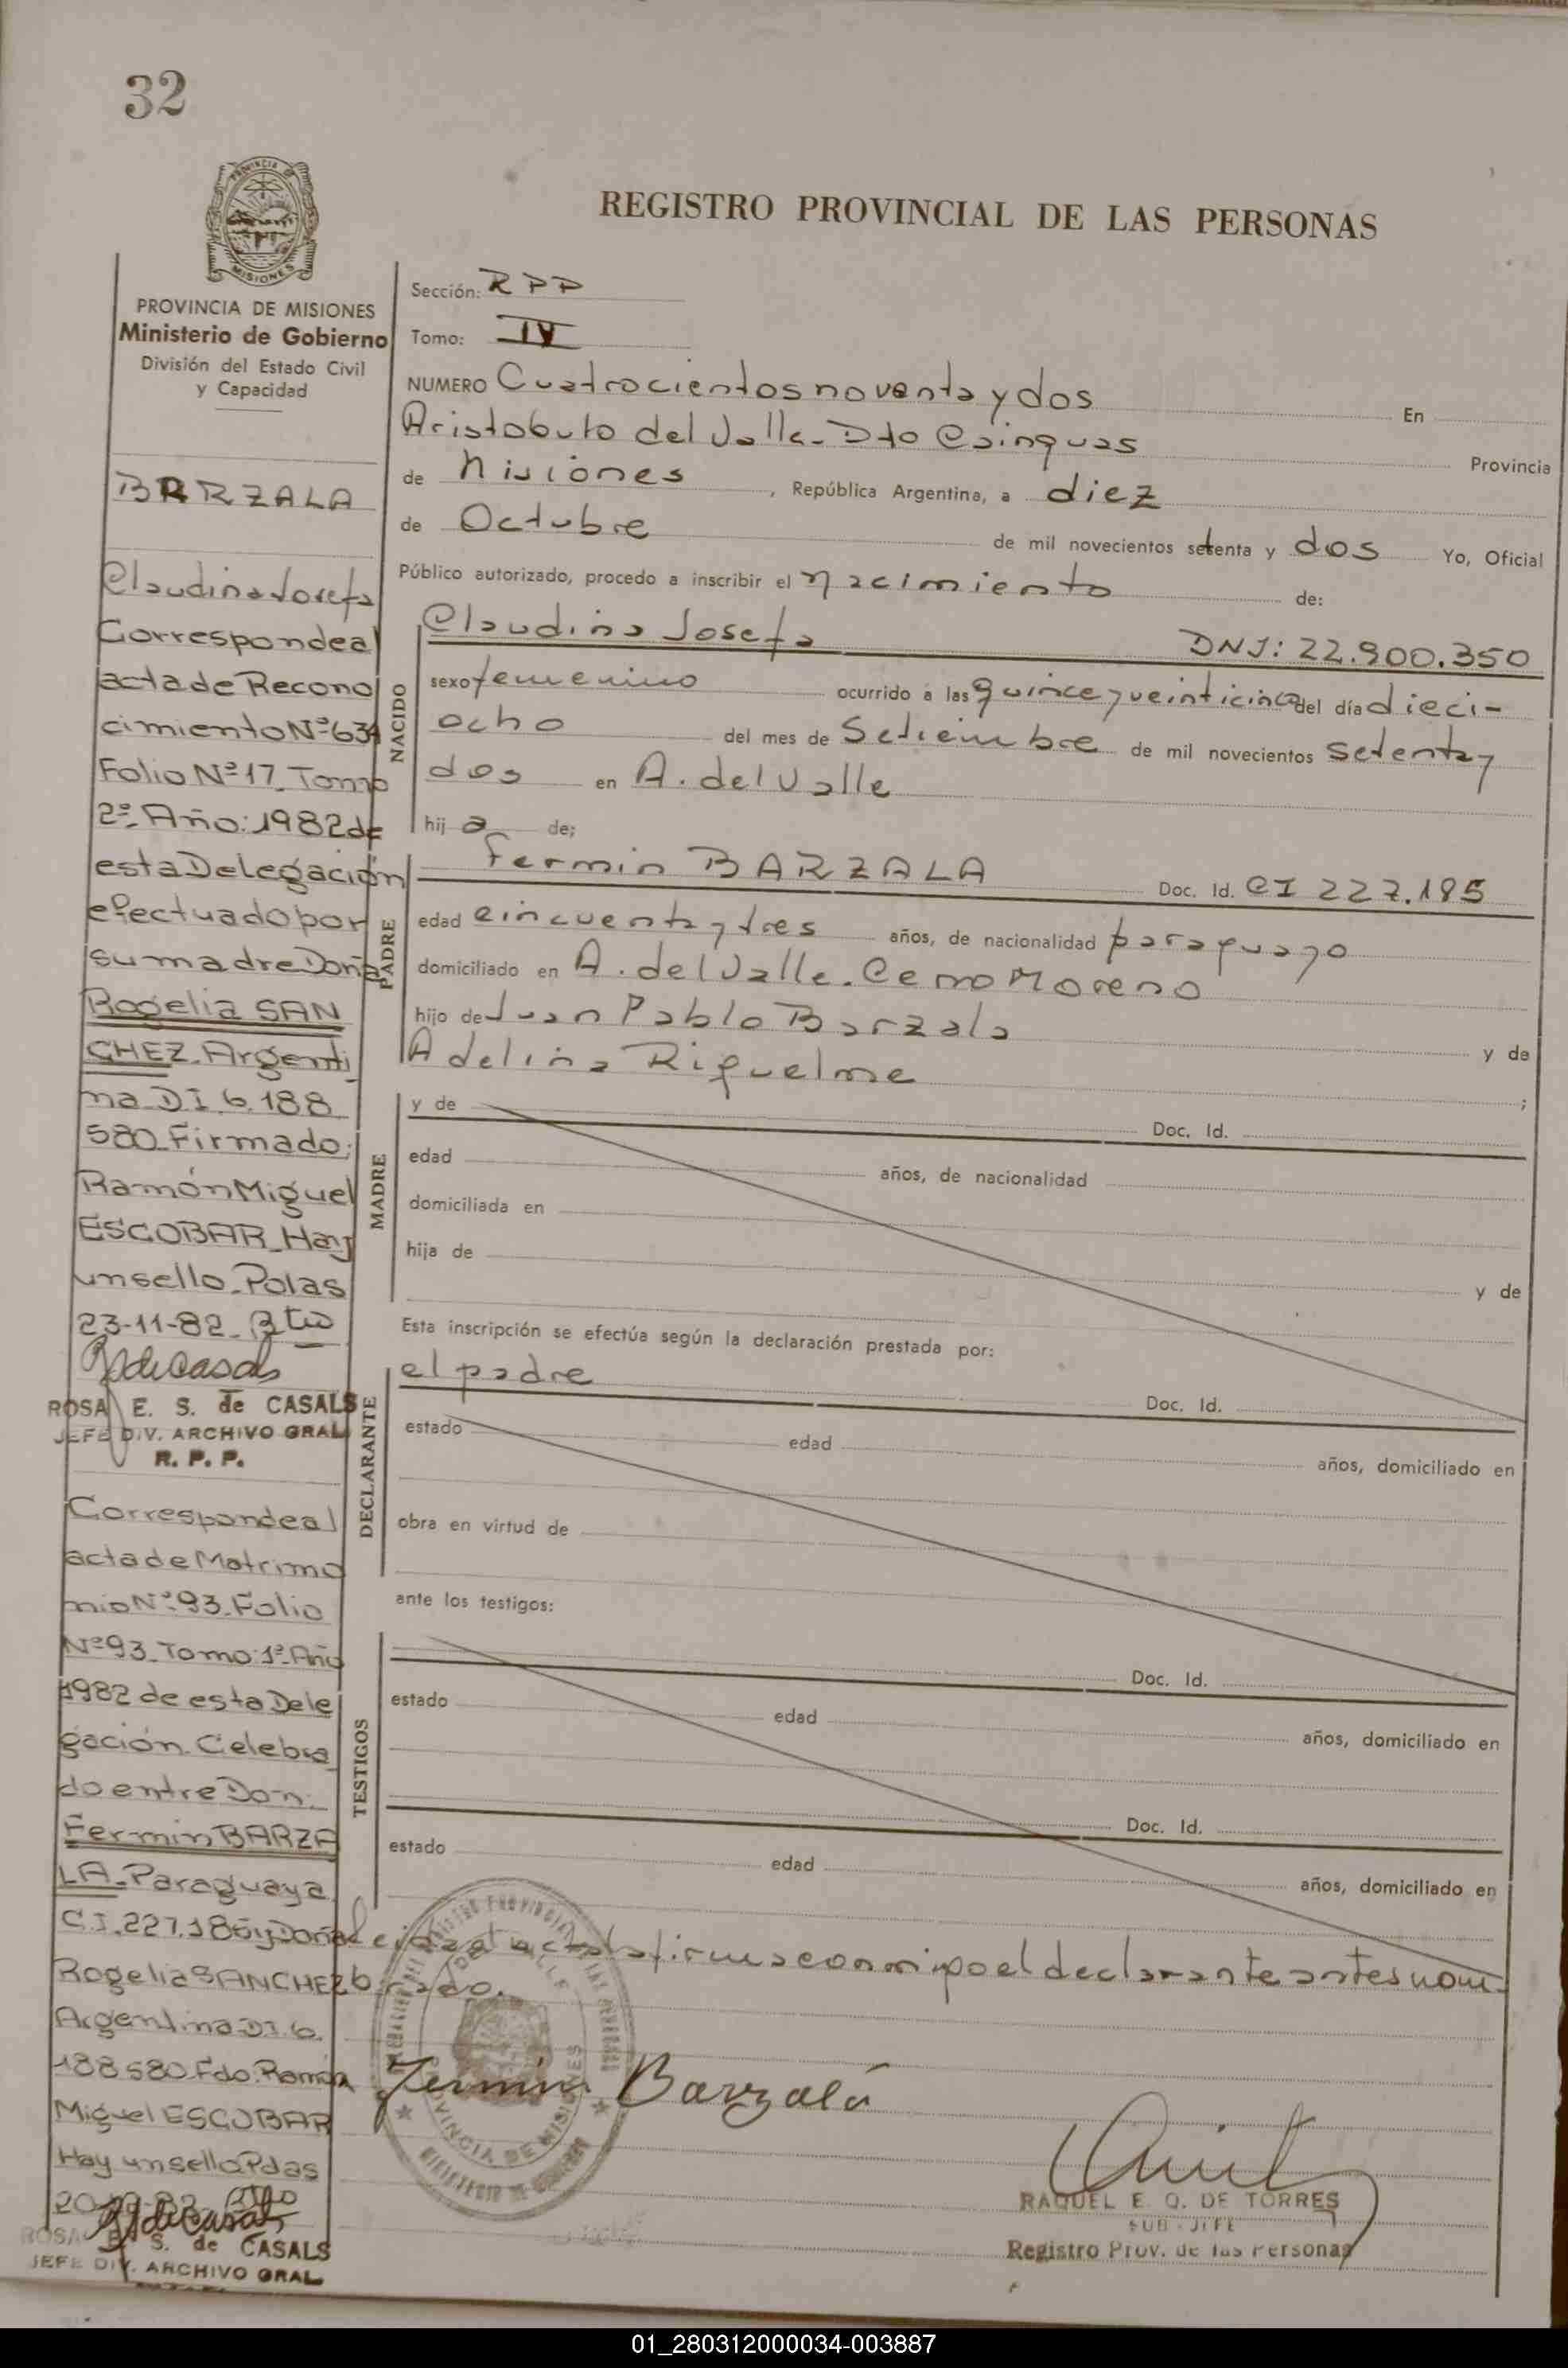 32
PROVINCIA DE MISIONES
Ministerio de Gobierno
División del Estado Civil
y Capacidad
BARZALA
Claudina Josefa
Corresponde al
acta de Recono
cimiento Nº 634
Folio Nº 17_Tomo
2º_Año:1982 de
esta Delegación
efectuado por
su madre Doña
Rogelia SAN
CHEZ_Argenti
na_DI.6.188
580_Firmado:
Ramón Miguel
ESCOBAR_Hay
un sello_Pdas
23-11-82_
ROSA E. S. de CASALS
JEFE DIV. ARCHIVO GRAL
R. P. P.
Corresponde al
acta de Matrimo
nio Nº 93_Folio
Nº 93_Tomo:1º_Año
1982 de esta Dele
gación_Celebra
do entre Don:
Fermin BARZA
LA_Paraguaya
C.I.227.185 y Doña
Rogelia SANCHEZ
Argentina DI.6.
188.580_Fdo.Ramón
Miguel ESCOBAR
Hay un sello Pdas
ROSA E. S. de CASALS
JEFE DIV. ARCHIVO GRAL
REGISTRO PROVINCIAL DE LAS PERSONAS
Sección: RPP
Tomo: IV
NUMERO Cuatrocientos noventa y dos En
Aristobulo del Valle - Dto Cainguas Provincia
de Misiones, República Argentina, a diez
de Octubre de mil novecientos setenta y dos Yo, Oficial
Público autorizado, procedo a inscribir el nacimiento de:
NACIDO
Claudina Josefa DNI: 22.900.350
sexo femenino ocurrido a las quince y veinticinco del día dieci-
ocho del mes de Setiembre de mil novecientos setenta y
dos en A. del Valle
hij a de;
PADRE
Fermin BARZALA Doc. Id. CI 227.185
edad cincuenta y tres años, de nacionalidad paraguayo
domiciliado en A. del Valle. Cerro Moreno
hijo de Juan Pablo Barzala y de
Adelina Riquelme ;
MADRE
y de Doc. Id.
edad años, de nacionalidad
domiciliada en
hija de y de
Esta inscripción se efectúa según la declaración prestada por:
DECLARANTE
el padre Doc. Id.
estado edad años, domiciliado en
obra en virtud de
ante los testigos:
TESTIGOS
Doc. Id.
estado edad años, domiciliado en
Doc. Id.
estado edad años, domiciliado en
Leida el acta la firma conmigo el declarante antes nom-
brado.
Fermin Barzala
PROVINCIA DE MISIONES
RAQUEL E. Q. DE TORRES
SUB-JEFE
Registro Prov. de las Personas
01_280312000034-003887